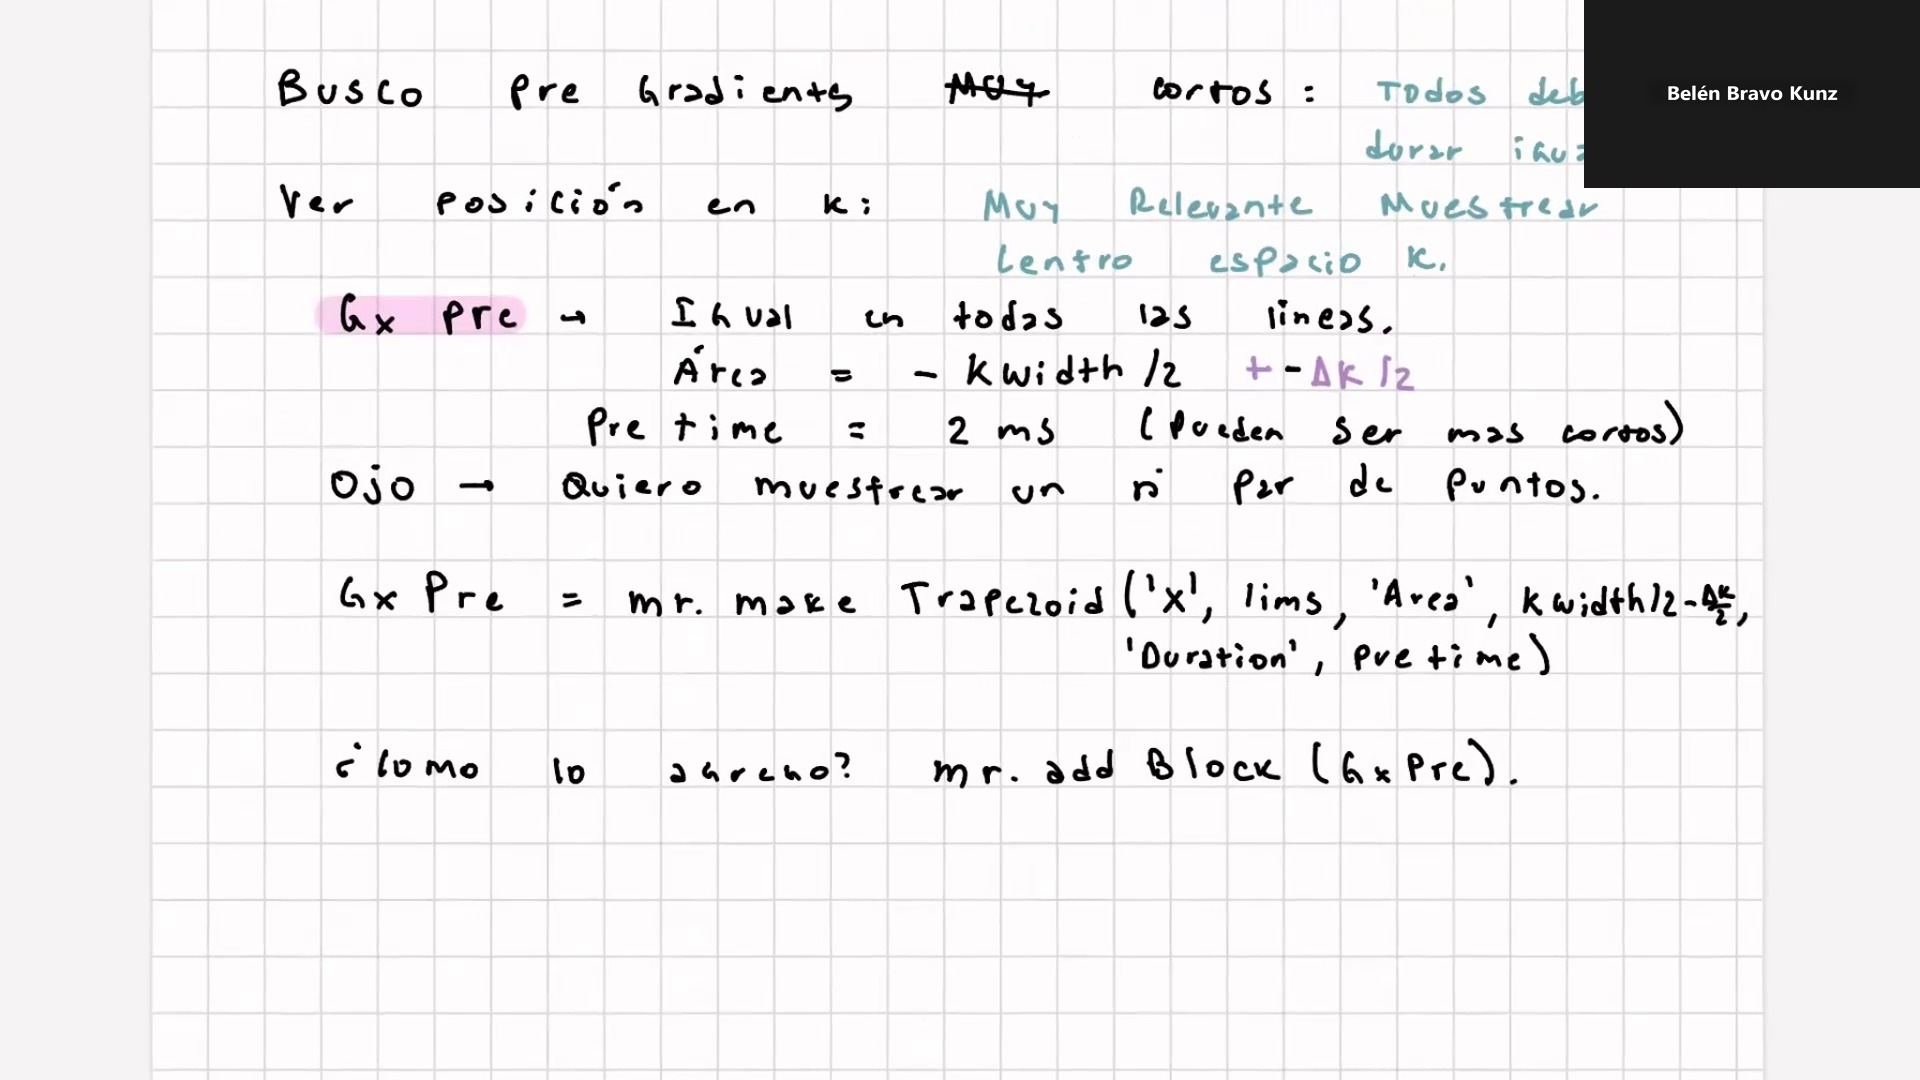 Busco Pre Gradients Muy cortos : Todos deb
durar igua
Ver posición en k: Muy Relevante Muestrear
Centro espacio k.
Gx Pre → Igual en todas las líneas.
Área = - kwidth /2 + - Δk /2
Pre time = 2 ms (Pueden ser mas cortos)
Ojo → Quiero muestrear un n° Par de Puntos.
Gx Pre = mr. make Trapezoid ('x', lims, 'Area', kwidth/2 - Δk/2,
'Duration', pretime)
¿Como lo agrego? mr. add Block (Gx Pre).
Belén Bravo Kunz